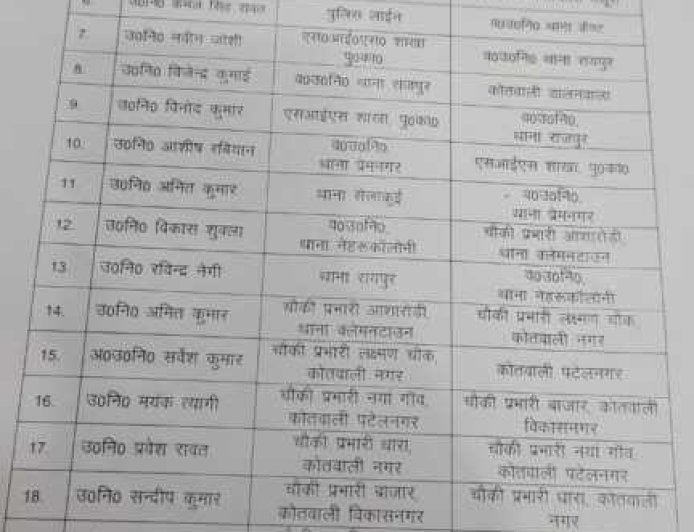 उ०नि० कमल सिंह रावत
पुलिस लाईन
व०उ०नि० थाना कैण्ट
7.
उ०नि० नवीन जोशी
एस०आई०एस० शाखा
पु०का०
व०उ०नि० थाना रायपुर
8.
उ०नि० विजेन्द्र कुमाई
व०उ०नि० थाना राजपुर
कोतवाली डालनवाला
9.
उ०नि० विनोद कुमार
एसआईएस शाखा पु०का०
व०उ०नि०,
थाना राजपुर
10.
उ०नि० आशीष रबियान
व०उ०नि०
थाना प्रेमनगर
एसआईएस शाखा, पु०का०
11.
उ०नि० अनित कुमार
थाना सेलाकुई
व०उ०नि०,
थाना प्रेमनगर
12.
उ०नि० विकास शुक्ला
व०उ०नि०,
थाना नेहरूकॉलोनी
चौकी प्रभारी आशारोडी,
थाना क्लेमनटाउन
13.
उ०नि० रविन्द्र नेगी
थाना रायपुर
व०उ०नि०,
थाना नेहरूकॉलोनी
14.
उ०नि० अमित कुमार
चौकी प्रभारी आशारोडी,
थाना क्लेमनटाउन
चौकी प्रभारी लक्ष्मण चौक,
कोतवाली नगर
15.
अ०उ०नि० सर्वेश कुमार
चौकी प्रभारी लक्ष्मण चौक,
कोतवाली नगर
कोतवाली पटेलनगर
16.
उ०नि० मयंक त्यागी
चौकी प्रभारी नया गॉव,
कोतवाली पटेलनगर
चौकी प्रभारी बाजार, कोतवाली
विकासनगर
17.
उ०नि० प्रवेश रावत
चौकी प्रभारी धारा,
कोतवाली नगर
चौकी प्रभारी नया गॉव,
कोतवाली पटेलनगर
18.
उ०नि० सन्दीप कुमार
चौकी प्रभारी बाजार,
कोतवाली विकासनगर
चौकी प्रभारी धारा, कोतवाली
नगर